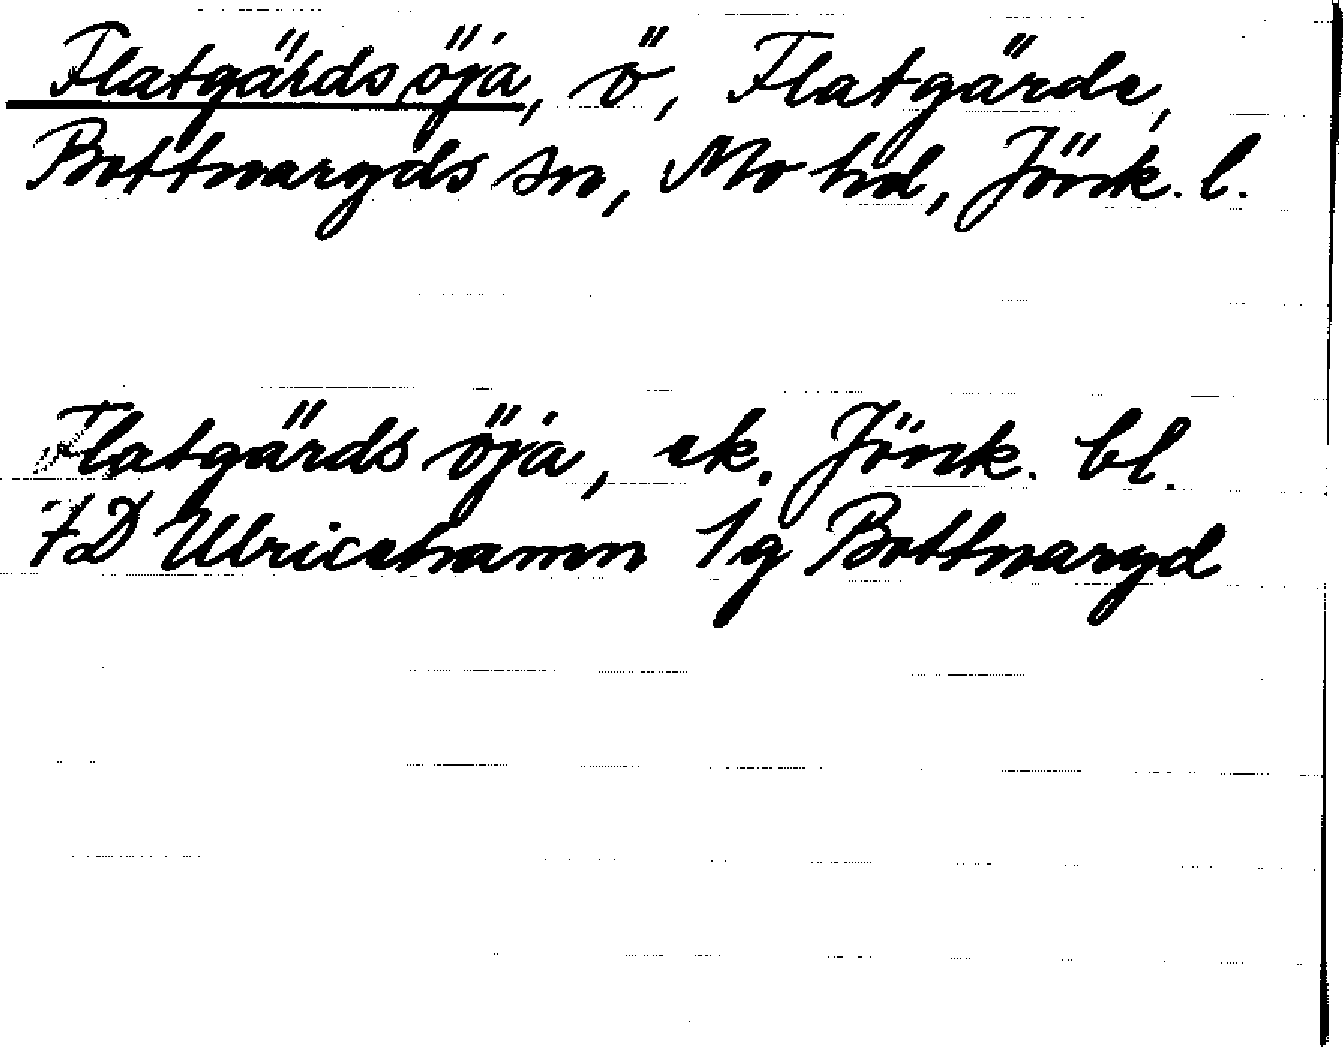 Flatgärds öja, ö, Flatgärde,
Bottnaryds sn, Mo hd, Jönk. l.
Flatgärds öja, ek. Jönk. bl.
7D Ulricehamn 1g Bottnaryd